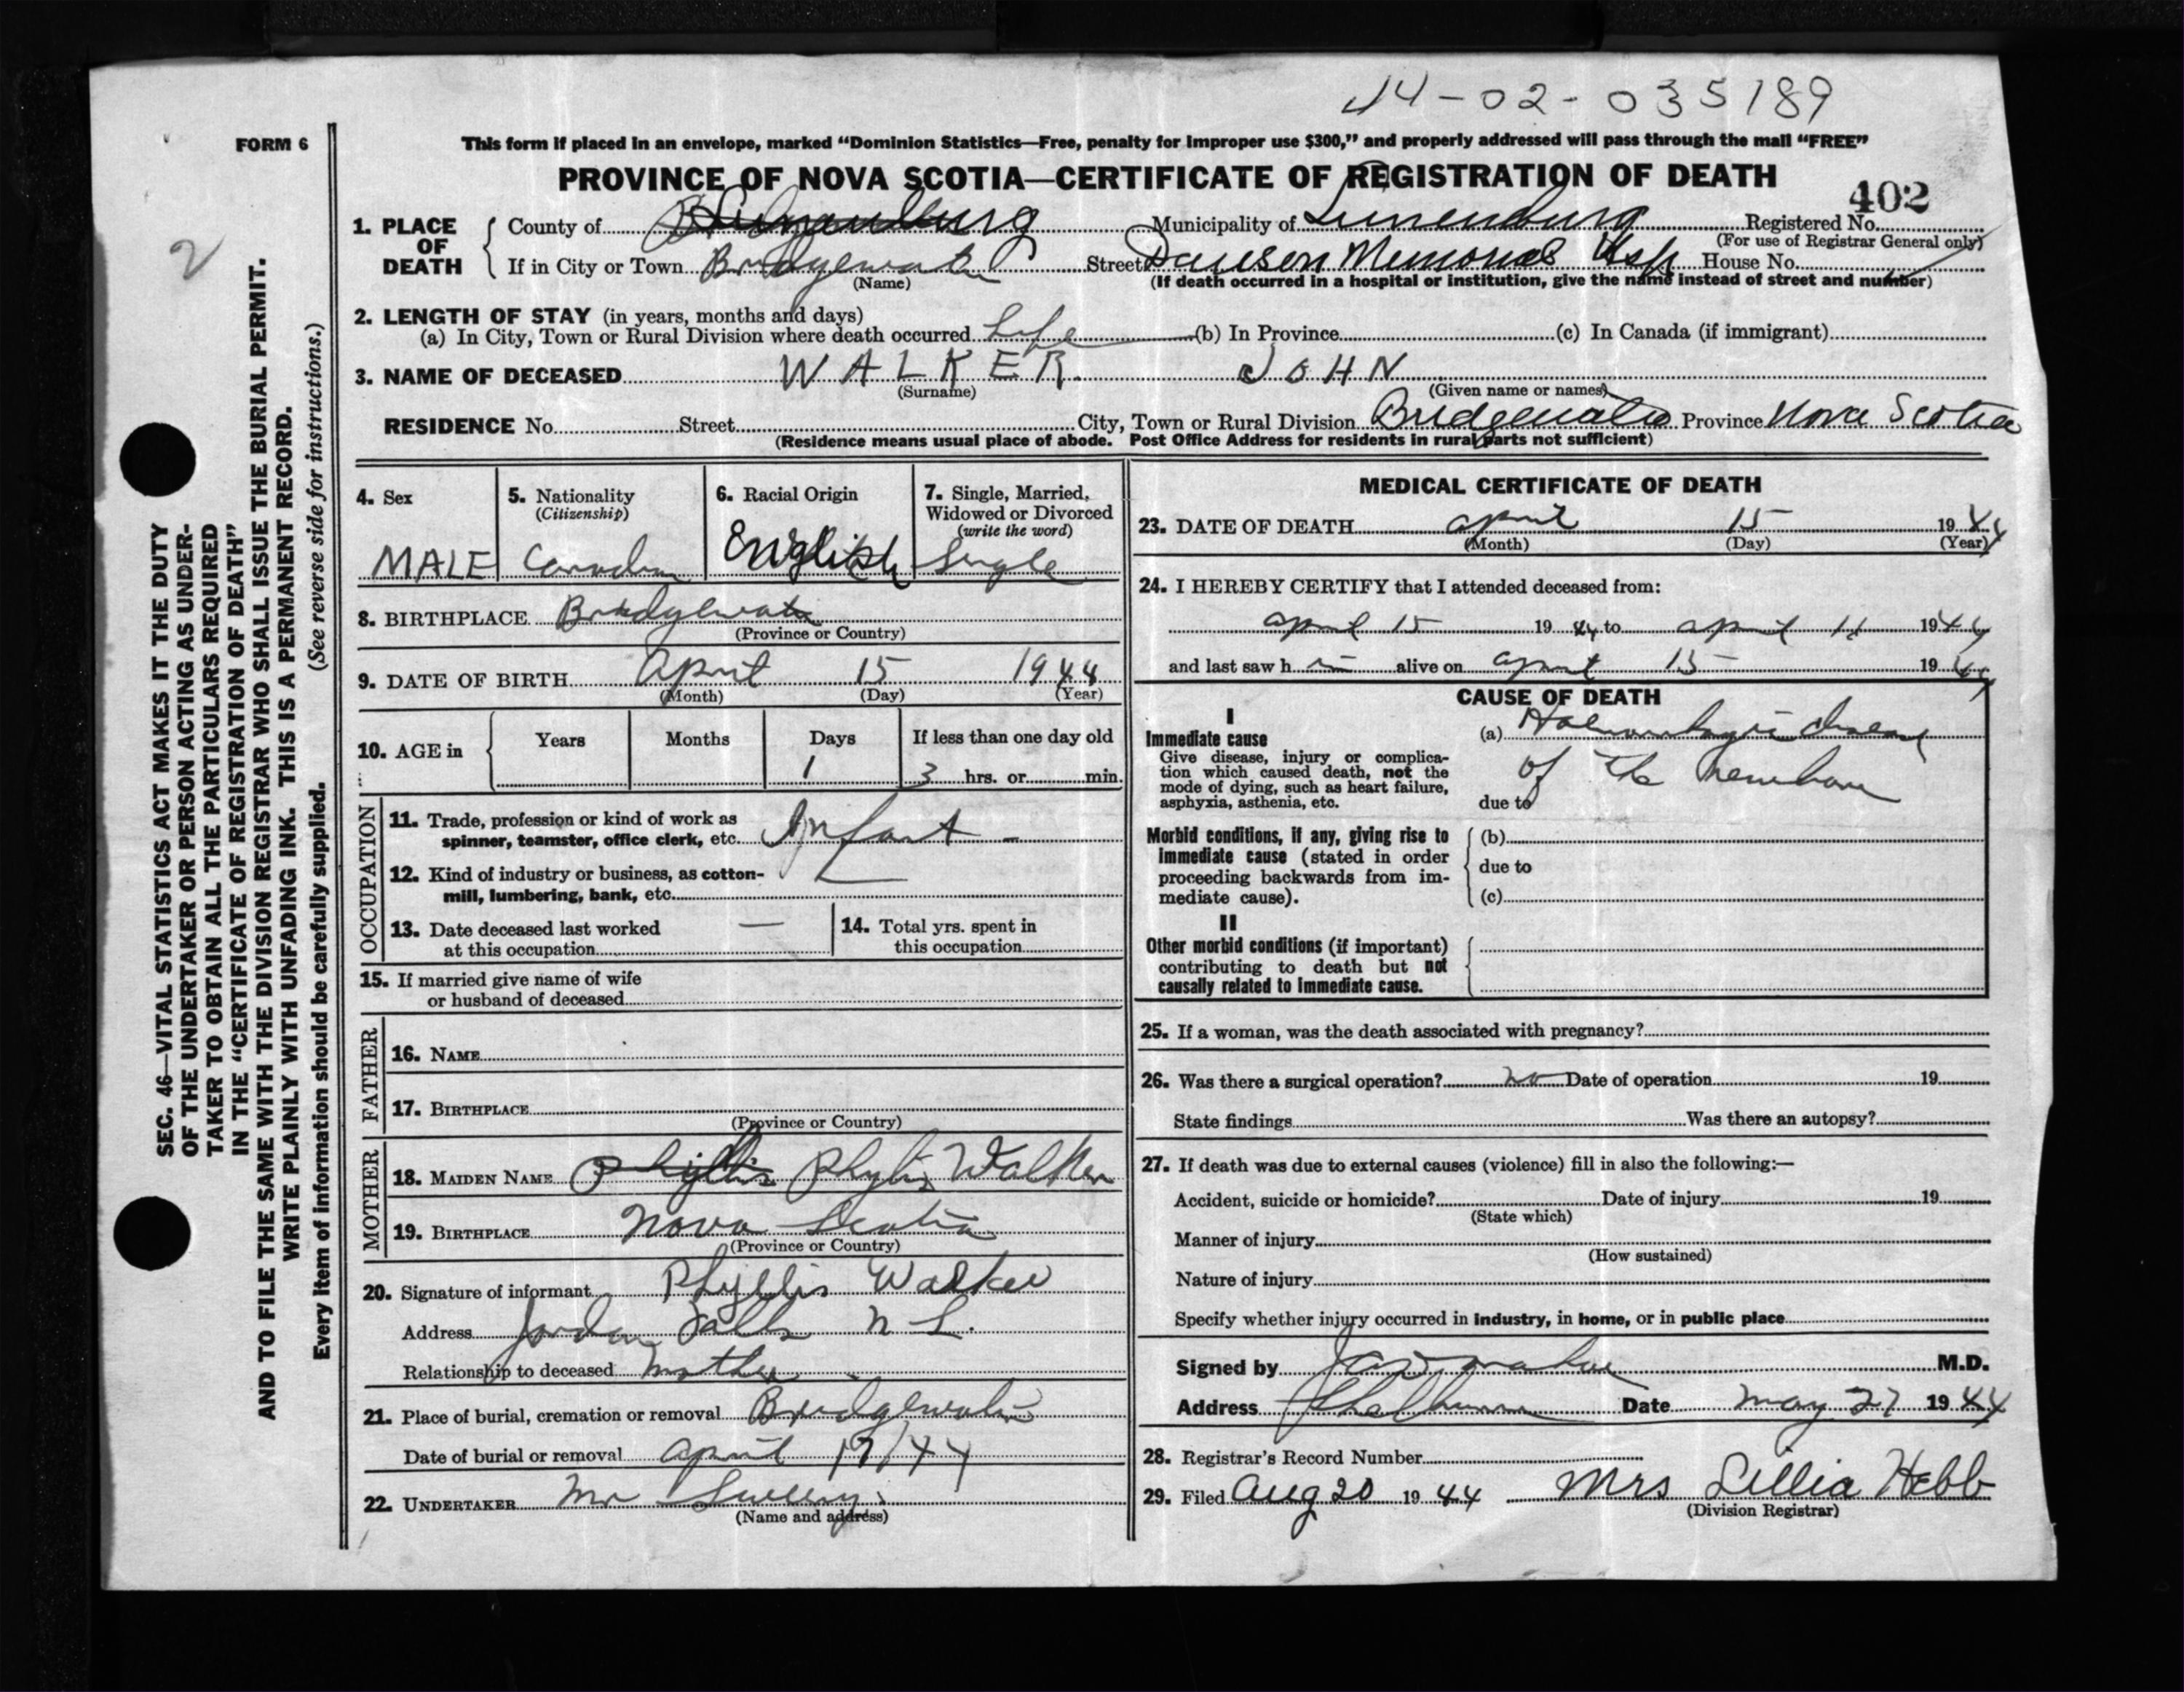 44-02-035189
FORM 6
This form if placed in an envelope, marked "Dominion Statistics—Free, penalty for improper use $300," and properly addressed will pass through the mail "FREE"
PROVINCE OF NOVA SCOTIA—CERTIFICATE OF REGISTRATION OF DEATH
402
2
1. PLACE OF DEATH { County of Lunenburg Municipality of Lunenburg Registered No.
(For use of Registrar General only)
If in City or Town Bridgewater Street Dawson Memorial Hsp House No.
(Name) (If death occurred in a hospital or institution, give the name instead of street and number)
2. LENGTH OF STAY (in years, months and days)
(a) In City, Town or Rural Division where death occurred Life (b) In Province (c) In Canada (if immigrant)
3. NAME OF DECEASED WALKER. JOHN
(Surname) (Given name or names)
RESIDENCE No. Street City, Town or Rural Division Bridgewater Province Nova Scotia
(Residence means usual place of abode. Post Office Address for residents in rural parts not sufficient)
4. Sex
MALE
5. Nationality
(Citizenship)
Canadian
6. Racial Origin
English
7. Single, Married,
Widowed or Divorced
(write the word)
Single
8. BIRTHPLACE Bridgewater
(Province or Country)
9. DATE OF BIRTH April 15 1944
(Month) (Day) (Year)
10. AGE in { Years Months Days If less than one day old
1 3 hrs. or min.
OCCUPATION
11. Trade, profession or kind of work as
spinner, teamster, office clerk, etc. Infant -
12. Kind of industry or business, as cotton-
mill, lumbering, bank, etc.
13. Date deceased last worked
at this occupation —
14. Total yrs. spent in
this occupation
15. If married give name of wife
or husband of deceased
FATHER
16. NAME
17. BIRTHPLACE
(Province or Country)
MOTHER
18. MAIDEN NAME Phyllis Phylis Walker
19. BIRTHPLACE Nova Scotia
(Province or Country)
20. Signature of informant Phyllis Walker
Address Jordan Falls N S.
Relationship to deceased Mother
21. Place of burial, cremation or removal Bridgewater
Date of burial or removal April 17/44
22. UNDERTAKER Mr Sweeny
(Name and address)
MEDICAL CERTIFICATE OF DEATH
23. DATE OF DEATH April 15 1944
(Month) (Day) (Year)
24. I HEREBY CERTIFY that I attended deceased from:
April 15 1944 to April 1944
and last saw h im alive on April 15 1944
CAUSE OF DEATH
I
Immediate cause
Give disease, injury or complica-
tion which caused death, not the
mode of dying, such as heart failure,
asphyxia, asthenia, etc.
(a) Haemorrhagic disease
of the newborn
due to
Morbid conditions, if any, giving rise to
immediate cause (stated in order
proceeding backwards from im-
mediate cause).
(b)
due to
(c)
II
Other morbid conditions (if important)
contributing to death but not
causally related to immediate cause.
25. If a woman, was the death associated with pregnancy?
26. Was there a surgical operation? no Date of operation 19
State findings Was there an autopsy?
27. If death was due to external causes (violence) fill in also the following:—
Accident, suicide or homicide? Date of injury 19
(State which)
Manner of injury
(How sustained)
Nature of injury
Specify whether injury occurred in industry, in home, or in public place
Signed by M.D.
Address Shelburne Date May 27 1944
28. Registrar's Record Number
29. Filed Aug 20 1944 Mrs Lillia Hebb
(Division Registrar)
SEC. 46—VITAL STATISTICS ACT MAKES IT THE DUTY
OF THE UNDERTAKER OR PERSON ACTING AS UNDER-
TAKER TO OBTAIN ALL THE PARTICULARS REQUIRED
IN THE "CERTIFICATE OF REGISTRATION OF DEATH"
AND TO FILE THE SAME WITH THE DIVISION REGISTRAR WHO SHALL ISSUE THE BURIAL PERMIT.
WRITE PLAINLY WITH UNFADING INK. THIS IS A PERMANENT RECORD.
Every item of information should be carefully supplied. (See reverse side for instructions.)